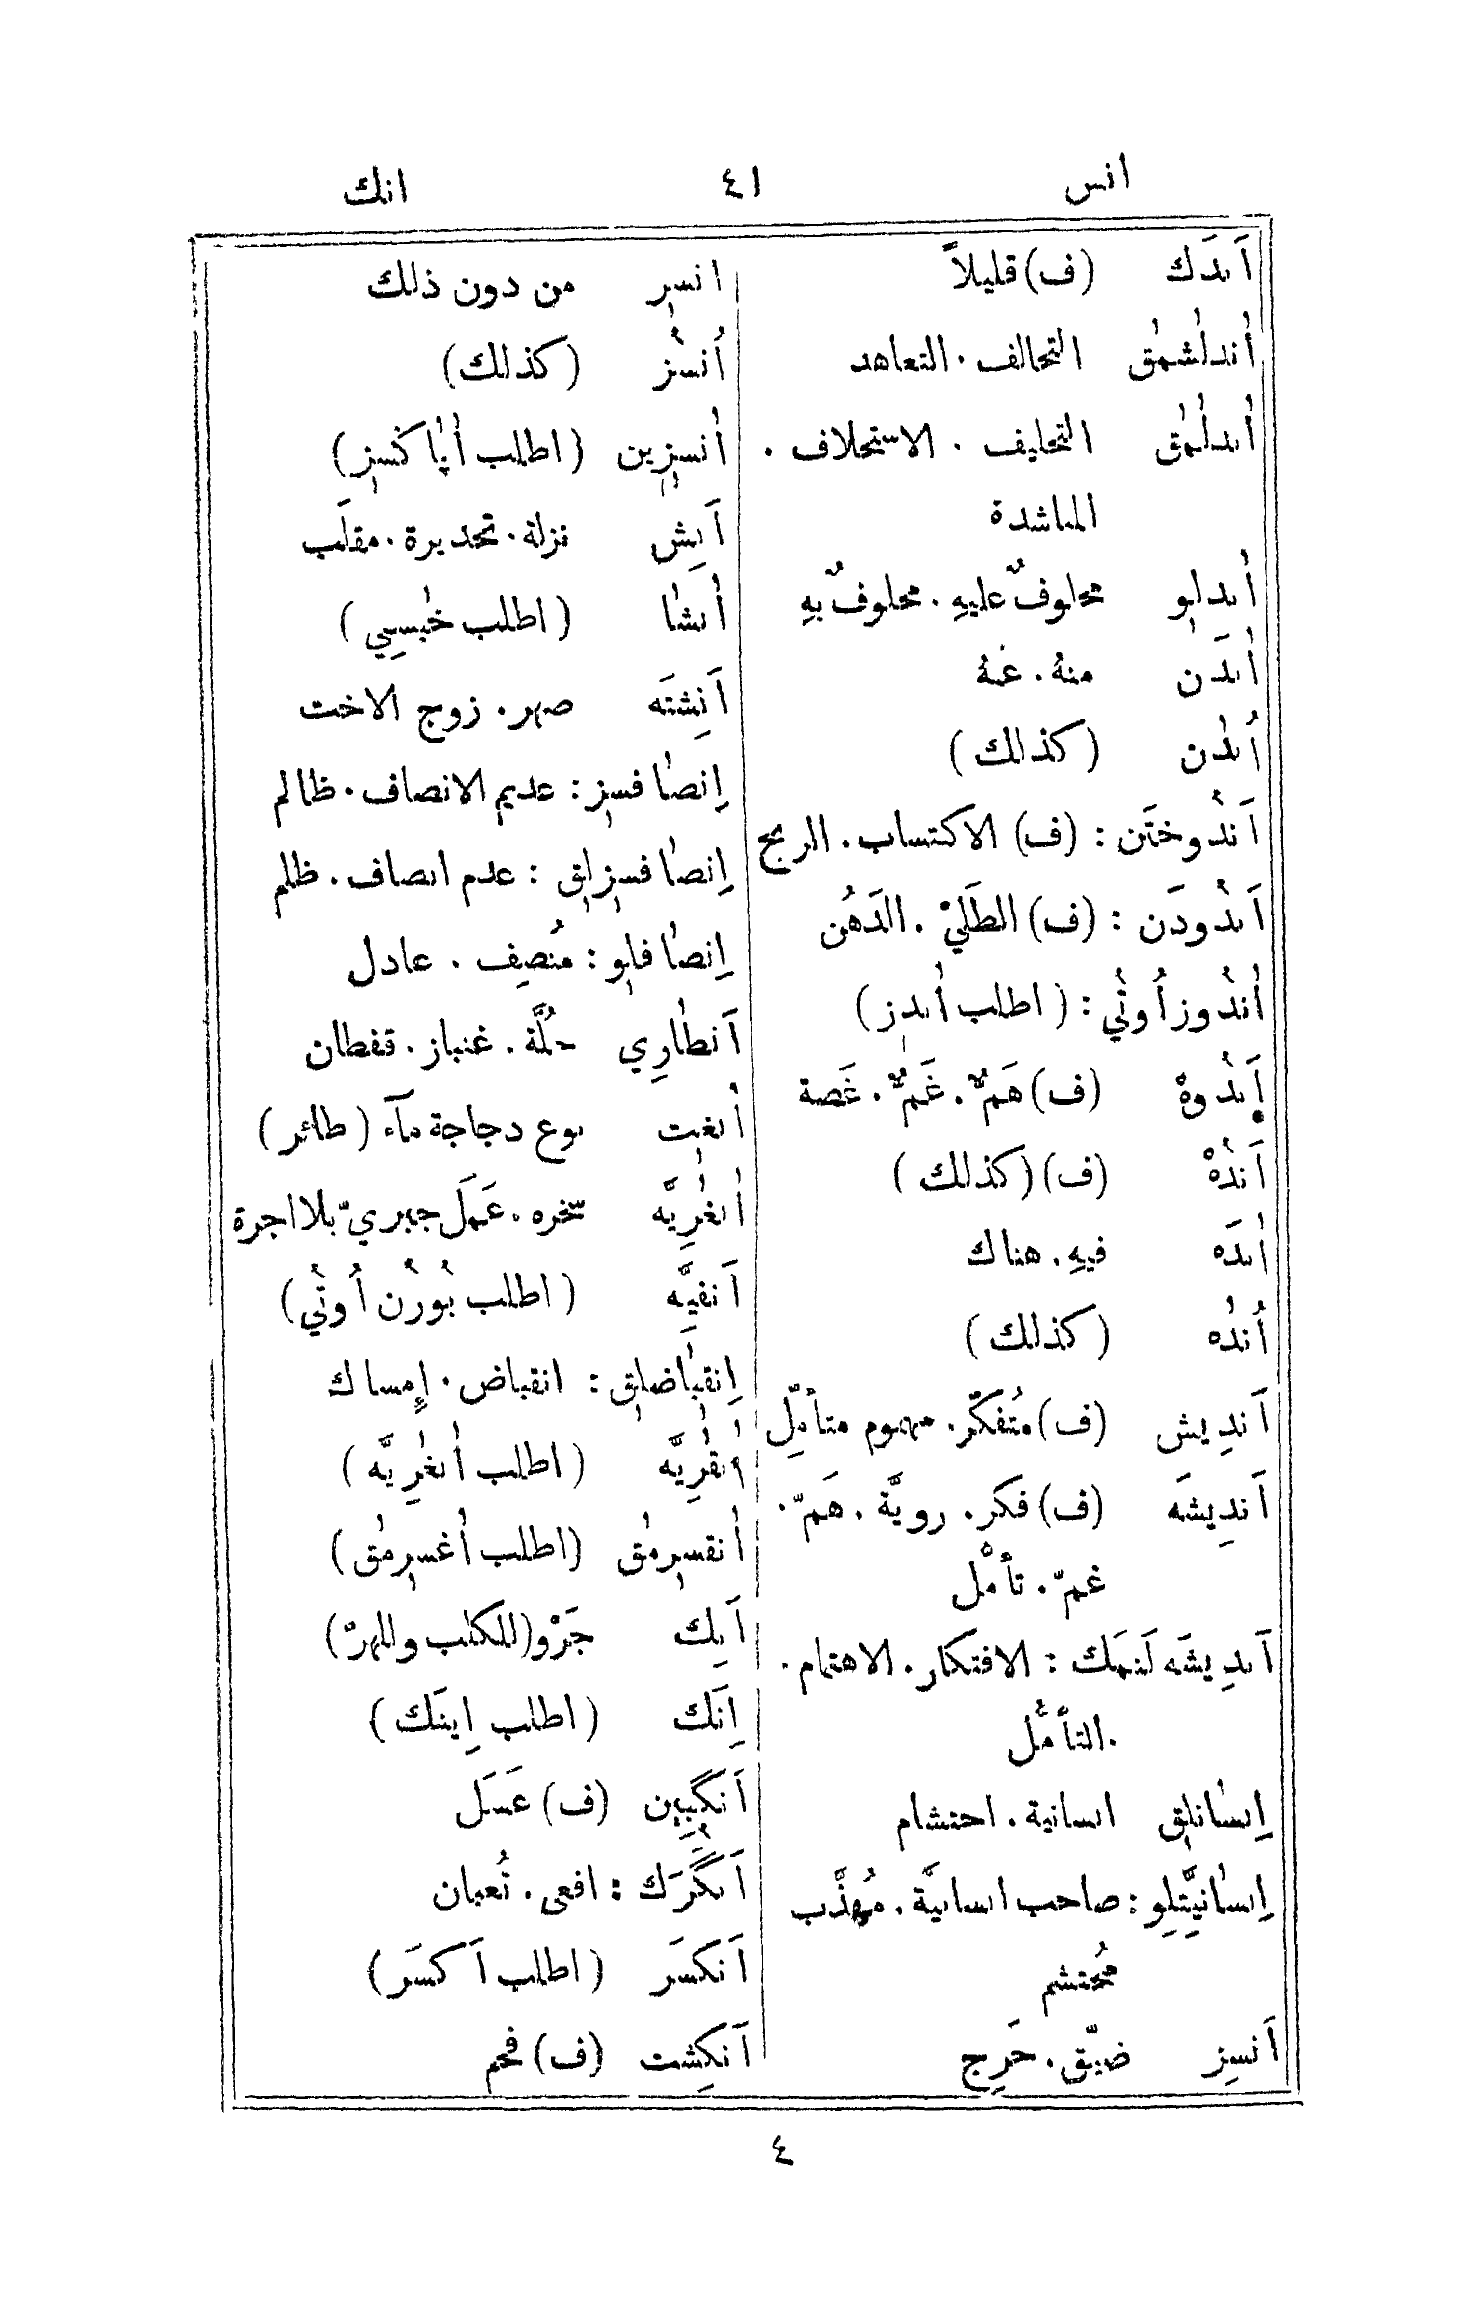 انس ٤١ انك
اَندَك (ف) قليلاً
اُندلشمق التحالف . التعاهد
اندلمق التحليف . الاستحلاف .
المناشدة
اندلو محلوفٌ عليهِ . محلوفٌ بهِ
اندَن منهُ . عنهُ
اُندن (كذلك)
اَندوختَن : (ف) الاكتساب . الربح
اَندودَن : (ف) الطَلَيْ . الدَهُن
اندوز اُوتي : (اطلب اندز)
اَندوهْ (ف) هَمٌّ . غَمٌّ . غَصة
اَندُهْ (ف) (كذلك)
اندَه فيهِ . هناك
اُندُه (كذلك)
اَندِيش (ف) مُتفكّر . مهموم متأمِّل
اَندِيشَه (ف) فكر . رويَّة . هَمّ .
غمّ . تأمْل
اَندِيشَه لَنمَك : الافتكار . الاهتمام .
التأمُّل .
اِنسانلق انسانية . احتشام
اِنسانيَّتلِو : صاحب انسانيَّة . مُهذَّب
مُحتشم
اَنسِز ضيّق . حَرِج
انسز من دون ذلك
اُنسُز (كذلك)
انسزين (اطلب اُپاكسز)
اَنِش نزلة . تحديرة . مقلَب
اُنشا (اطلب خبسسِي)
اَنِشتَه صهر . زوج الاخت
اِنصافسز : عديم الانصاف . ظالم
اِنصافسزلق : عدم انصاف . ظلم
اِنصافلو : مُنصِف . عادل
اَنطارِي حُلَّة . غنباز . قفطان
اُنغت نوع دجاجة مآء (طائر)
اُنغرِيَّه سخره . عَمَل جبريّ بلا اجرة
اَنفيَّه (اطلب بُورُن اُوتُي)
اِنقباضلق : انقباض . إِمساك
اُنقُرِيَّه (اطلب اُنغرِيَّه)
اُنقسرمق (اطلب اُغسرمق)
اَنِك جَرْو (للكلب وللهرّ)
اِنَك (اطلب اِينَك)
اَنگبِين (ف) عَسَل
اَنگَرَك : افعى . ثُعبان
اَنكسَر (اطلب اَكسَر)
اَنكِشت (ف) فحم
٤